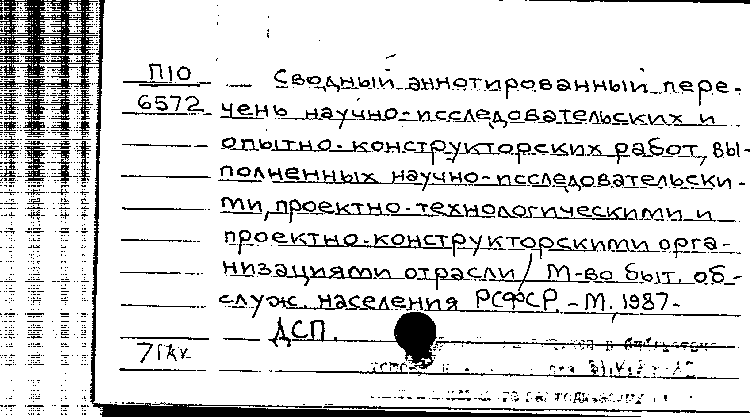 П10
6572
Сводный аннотированный пере-
чень научно-исследовательских и
опытно-конструкторских работ, вы-
полненных научно-исследовательски-
ми, проектно-технологическими и
проектно-конструкторскими орга-
низациями отрасли / М-во быт. об-
служ. населения РСФСР. - М., 1987-
ДСП.